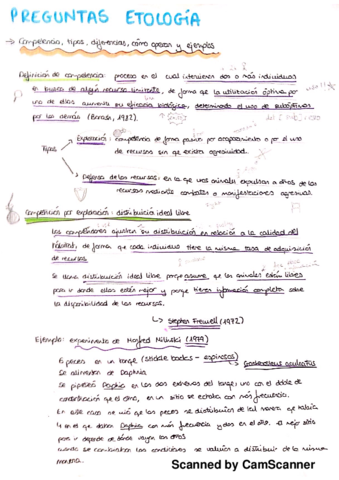 PREGUNTAS ETOLOGÍA
→ Competencia, tipos, diferencias, cómo operan y ejemplos
Definición de competencia: proceso en el cual intervienen dos o más individuos
en busca de algún recurso limitante, de forma que la utilización óptima por
uno de ellos aumenta su eficacia biológica, determinando el uso de subóptimos
por los demás (Barash, 1982).
Tipos
Explotación: competencia de forma pasiva por acaparamiento o por el uso
de recursos sin que exista agresividad.
Defensa de los recursos: en la que unos animales expulsan a otros de los
recursos mediante combates o manifestaciones agresivas.
Competencia por explotación: distribución ideal libre
Los competidores ajustan su distribución en relación a la calidad del
hábitat, de forma que cada individuo tiene la misma tasa de adquisición
de recursos.
Se llama distribución ideal libre porque asume que los animales están libres
para ir donde ellos están mejor y porque tienen información completa sobre
la disponibilidad de los recursos.
↳ Stephen Fretwell (1972)
Ejemplo: experimento de Manfred Milinski (1979)
6 peces en un tanque (stickle backs - espinosos)
↳ Gasterosteus aculeatus
Se alimentan de Daphnia
Se pipeteó Daphnia en los dos extremos del tanque, uno con el doble de
concentración que el otro, en un sitio se echaba con más frecuencia.
En este caso se vio que los peces se distribuían de tal manera que había
4 en el que daban Daphnia con más frecuencia y dos en el otro. El mejor sitio
para ir depende de dónde vayan los otros
Cuando se cambiaban las condiciones se volvían a distribuir de la misma
manera.
Scanned by CamScanner